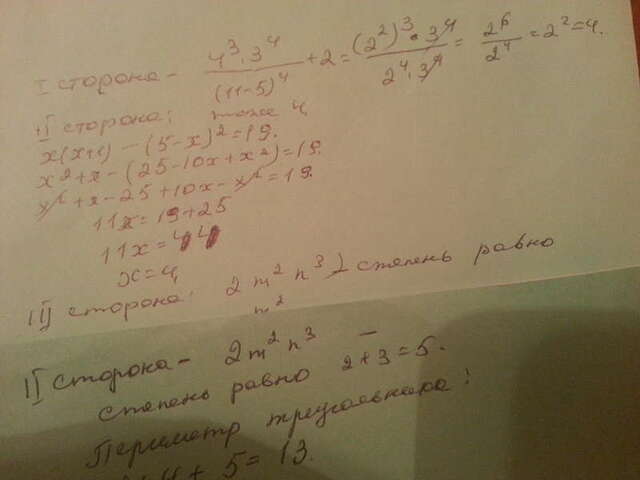 I сторона - 4³·3⁴/(11-5)⁴ + 2 = (2²)³·3⁴/2⁴·3⁴ = 2⁶/2⁴ = 2² = 4.
II сторона: тоже 4
x(x+1) - (5-x)² = 19.
x² + x - (25-10x+x²) = 19.
x² + x - 25 + 10x - x² = 19.
11x = 19+25
11x = 44
x = 4
III сторона: 2m²n³ степень равно
m²
II сторона - 2m²n³ -
степень равно 2+3=5.
Периметр треугольника:
4 + 5 = 13.